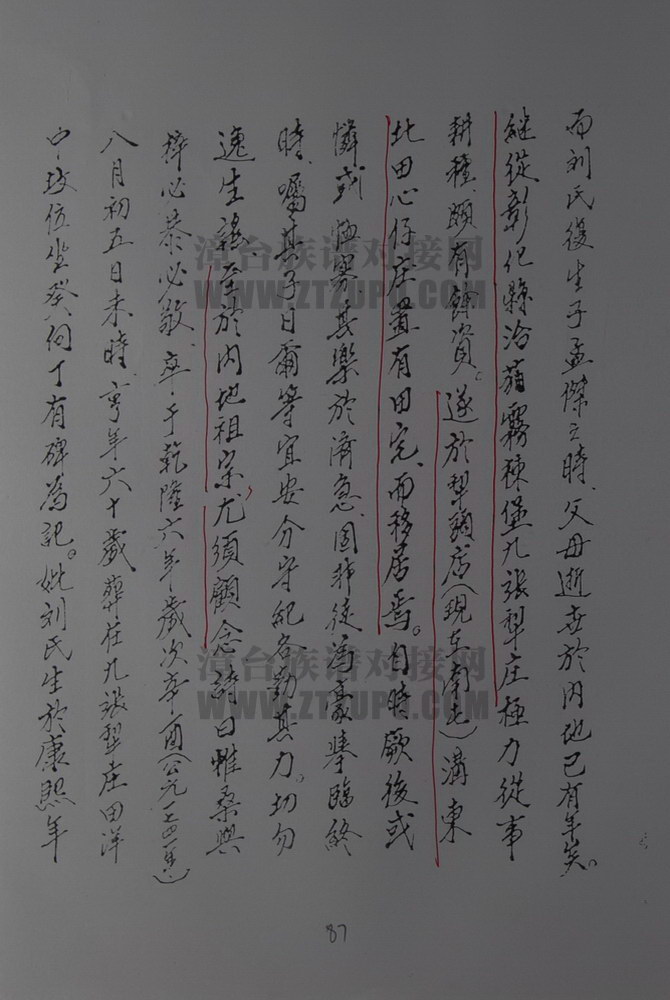 而刘氏復生子孟傑之時、父母逝世於內地已有年矣。
継從彰化縣治蘓霧棟堡九張犁庄極力從事
耕種、頗有餘資。遂於犁頭店(現在南屯)溝東
北田心仔庄置有田宅、而移居焉。自時厥後或
憐或恤寡、其樂於濟急、固非徒為豪舉臨終
時、囑其子曰爾等宜安分守紀各勤其力。切勿
逸生謠、至於內地祖宗、尤須顧念詩曰惟桑與
梓必恭必敬、卒于乾隆六年歲次辛酉(公元一七四一年)
八月初五日未時、享年六十歲葬在九張犁庄田洋
中、坟位坐癸向丁有碑為記。妣刘氏生於康熙年
87
漳台族谱对接网
WWW.ZTZUPU.COM
漳台族谱对接网
WWW.ZTZUPU.COM